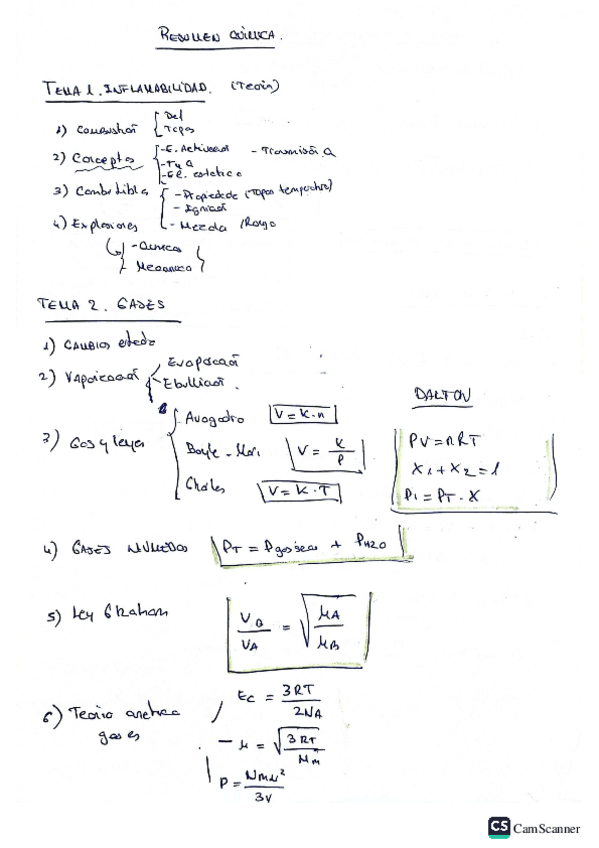 RESUMEN QUÍMICA.
TEMA 1. INFLAMABILIDAD. (Teoría)
1) Combustión - Def
- Tipos
2) Conceptos - E. Activación - Transmisión Q
- T y Q
- estática
3) Combustibles - Propiedades (Tipos temperatura)
- Ignición
4) Explosiones - Mezcla / Rango
- Química
- Mecánica
TEMA 2. GASES
1) CAMBIOS estado
2) VAPORIZACIÓN Evaporación
Ebullición.
DALTON
3) Gas y leyes - Avogadro V = K·n
Boyle - Mari V = K/P
Charles V = K·T
PV = nRT
X1 + X2 = 1
P1 = PT · X
4) GASES HÚMEDOS PT = Pgas seco + PH2O
5) Ley Graham VB/VA = √(MA/MB)
6) Teoría cinética gases
EC = 3RT/2NA
- μ = √(3RT/Mm)
P = Nmμ²/3V
CS CamScanner